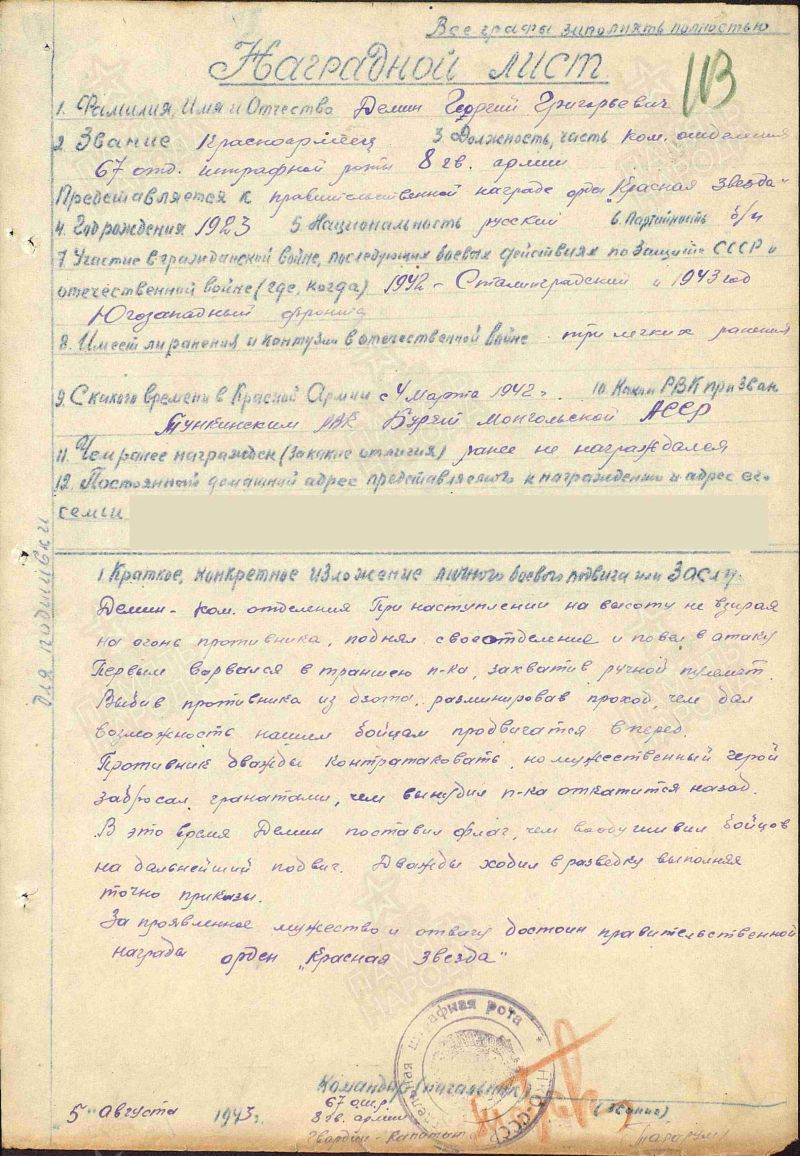 Все графы заполнять полностью
Наградной лист
113
1. Фамилия, Имя и Отчество Демин Георгий Григорьевич
2. Звание Красноармеец 3. Должность, часть ком. отделения
67 отд. штрафной роты 8 гв. армии
Представляется к правительственной награде орден "Красная Звезда"
4. Год рождения 1923 5. Национальность русский 6. Партийность б/п
7. Участие в гражданской войне, последующих боевых действиях по защите СССР и
отечественной войне (где, когда) 1942 - Сталинградский и 1943 год
Югозападный фронта
8. Имеет ли ранения и контузии в отечественной войне три легких ранения
9. С какого времени в Красной Армии с 4 марта 1942 г. 10. Каким РВК призван
Тункинским РВК Бурят Монгольской АССР
11. Чем ранее награжден (за какие отличия) ранее не награждался
12. Постоянный домашний адрес представляемого к награждению и адрес его
семьи
Для подшивки
1 Краткое, конкретное изложение личного боевого подвига или заслу.
Демин - ком. отделения При наступлении на высоту не взирая
на огонь противника, поднял свое отделение и повел в атаку
Первым ворвался в траншею п-ка, захватив ручной пулемет.
Выбив противника из дзота, разминировав проход, чем дал
возможность нашим бойцам продвигатся вперед.
Противник дважды контратаковать, но мужественный герой
забросал гранатами, чем вынудил п-ка откатится назад.
В это время Демин поставил флаг, чем воодушивил бойцов
на дальнейший подвиг. Дважды ходил в разведку выполняя
точно приказы.
За проявленное мужество и отвагу достоин правительственной
награды орден "Красная Звезда"
штрафная рота
НКО-СССР
Командир (начальник)
67 ош.р. (звание)
5" августа 1943 г. 8 гв. армии
гвардии-капитан